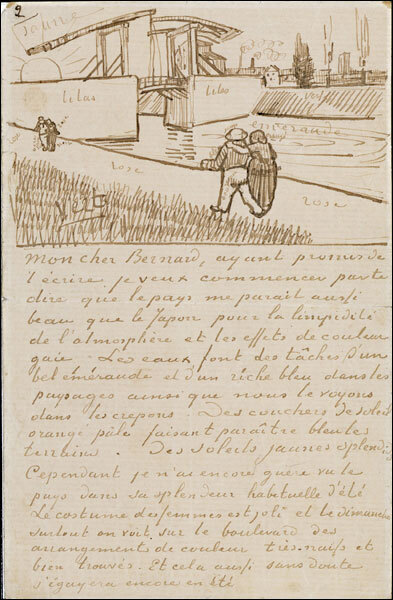 2
jaune
lilas
lilas
vert
émeraude
rose
rose
rose
vert
Mon cher Bernard, ayant promis de
t'écrire je veux commencer par te
dire que le pays me parait aussi
beau que le Japon pour la limpidité
de l'atmosphère et les effets de couleur
gaie. Les eaux font des tâches d'un
bel émeraude et d'un riche bleu dans les
paysages ainsi que nous le voyons
dans les crepons. Des couchers de soleil
orangé pâle faisant paraître bleu les
terrains. Des soleils jaunes splendides
Cependant je n'ai encore guère vu le
pays dans sa splendeur habituelle d'été
Le costume des femmes est joli et le dimanche
surtout on voit sur le boulevard des
arrangements de couleur très naïfs et
bien trouvés. Et cela aussi sans doute
s'égayera encore en été